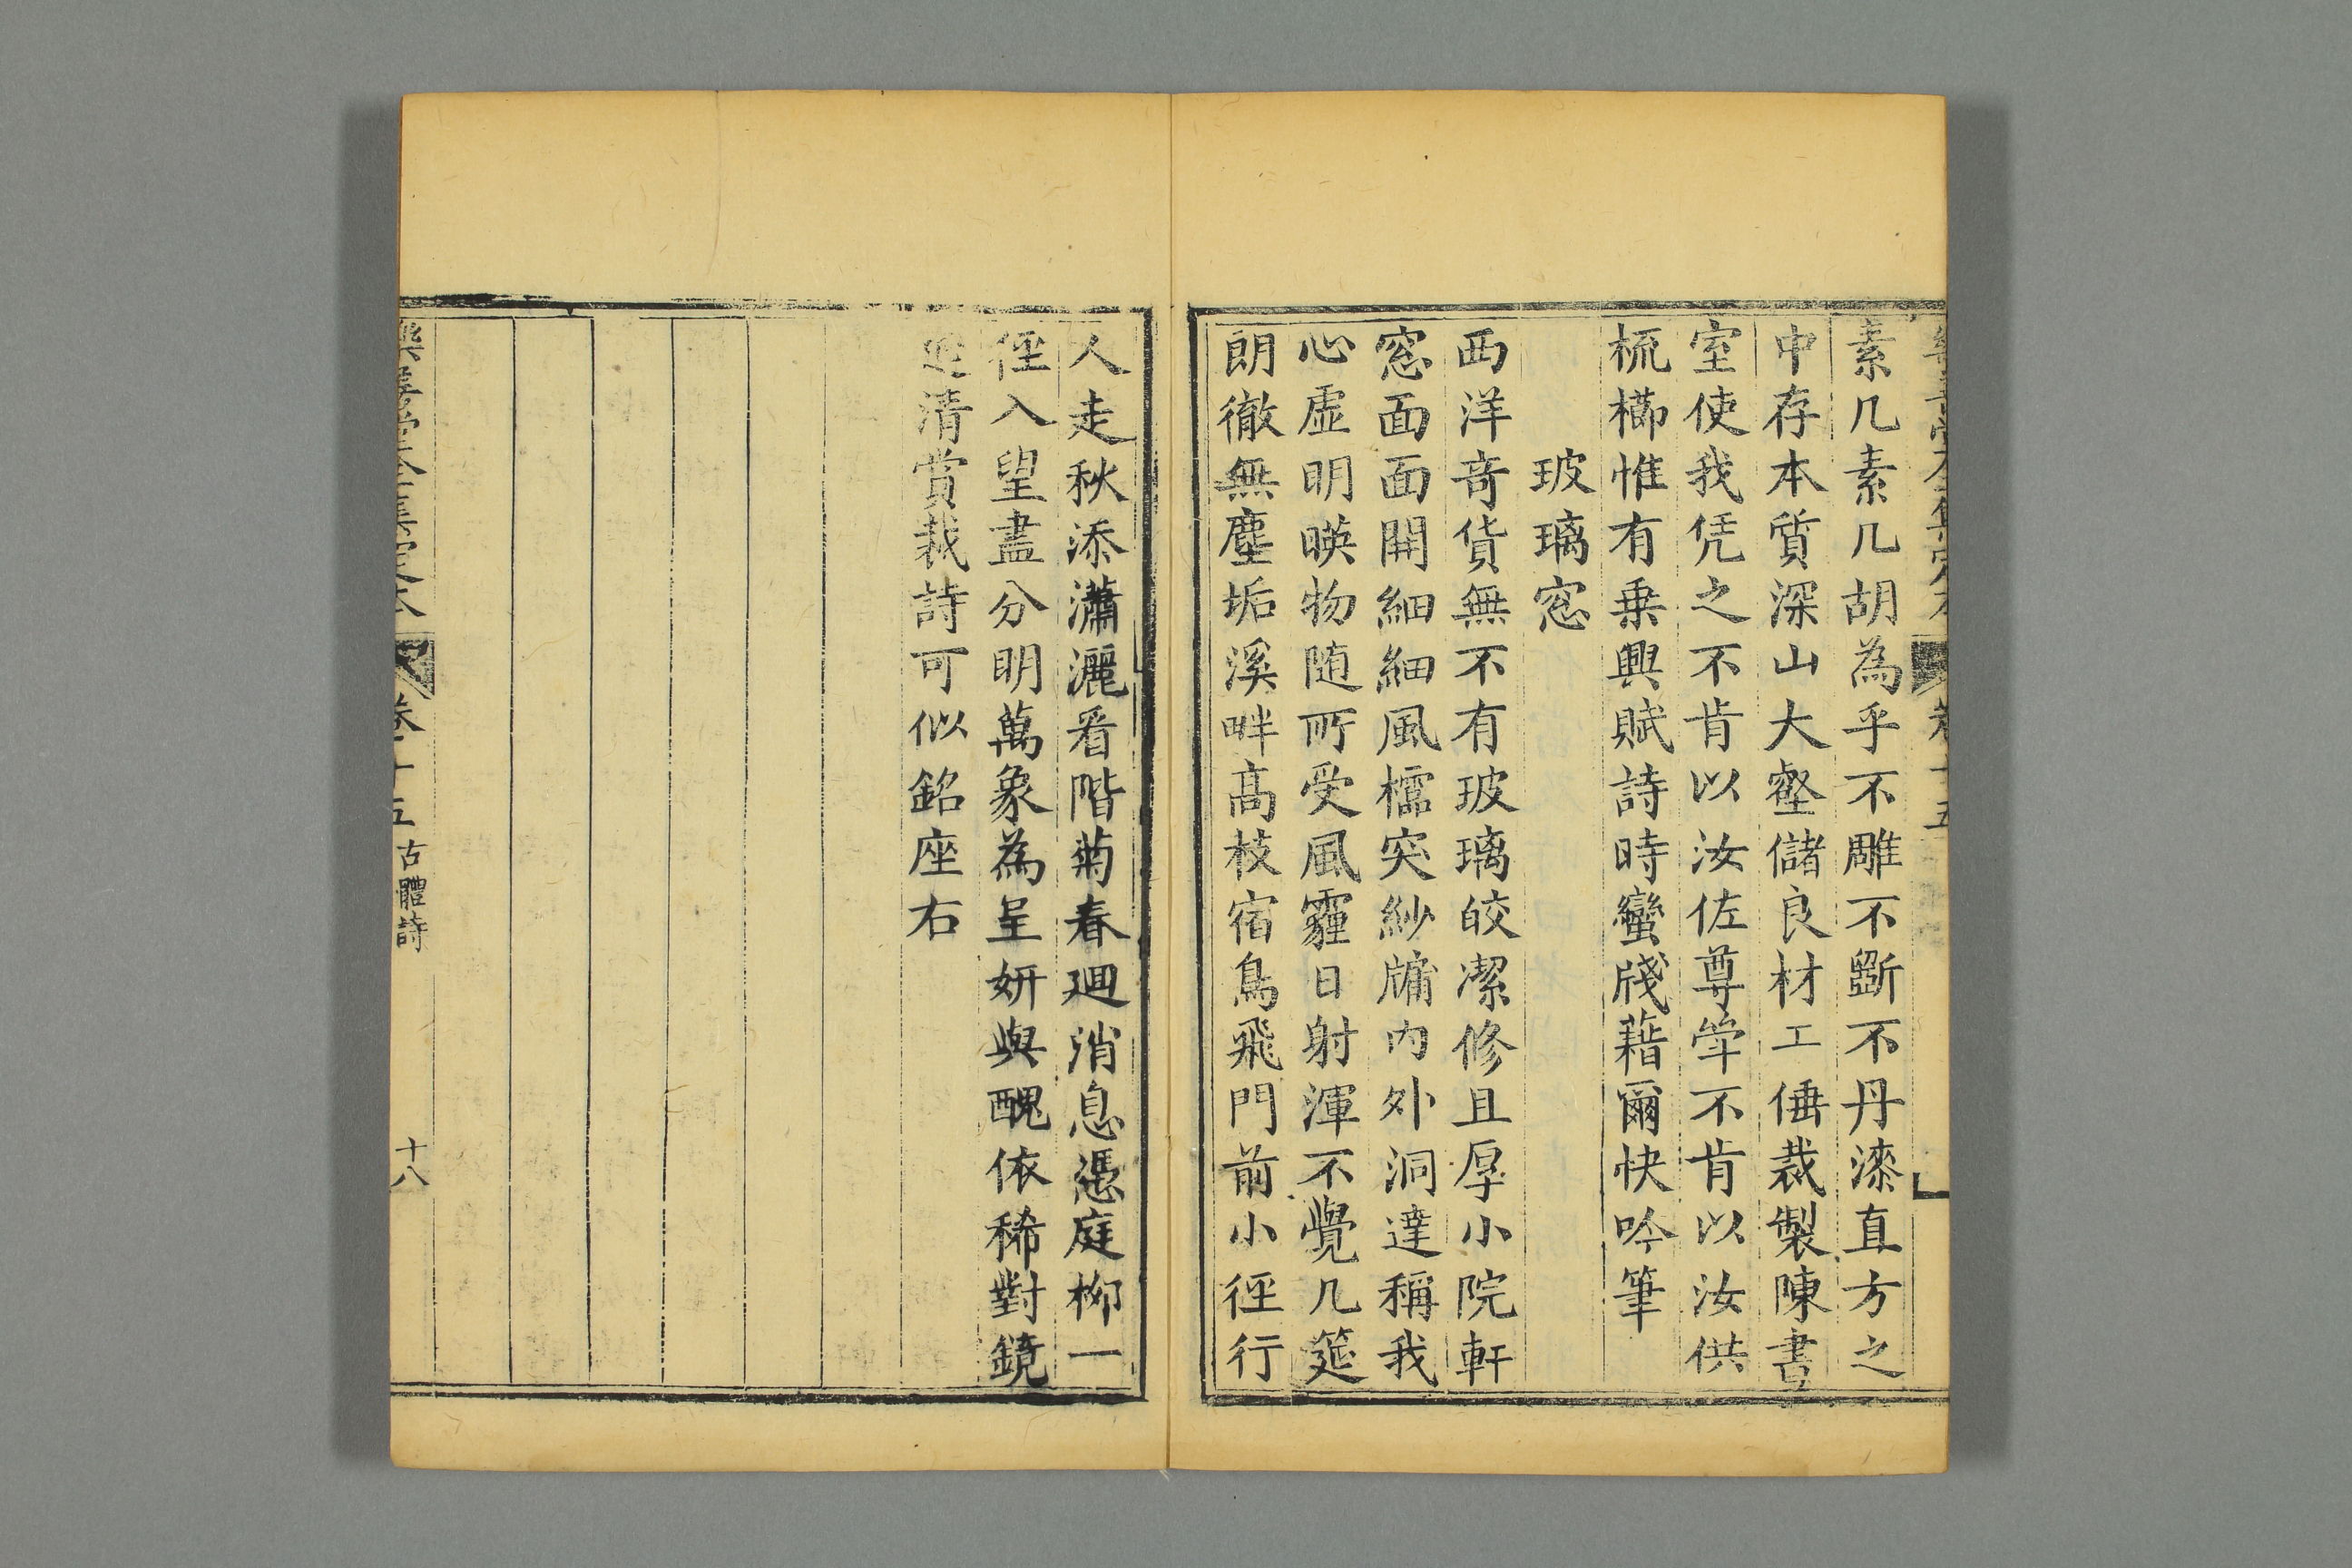 素几素几胡為乎不雕不斵不丹漆直方之
中存本質深山大壑儲良材工倕裁製陳書
室使我凭之不肯以汝佐尊斚不肯以汝供
梳櫛惟有乗興賦詩時蠻牋藉爾快吟筆
玻璃窓
西洋竒貨無不有玻璃皎潔修且厚小院軒
窓面面開細細風櫺突紗牖内外洞達稱我
心虚明暎物随所受風霾日射渾不覺几筵
朗徹無塵垢溪畔髙枝宿鳥飛門前小徑行
人走秋添瀟灑看階菊春廻消息憑庭栁一
徑入望盡分明萬象為呈妍與醜依稀對鏡
延清賞裁詩可似銘座右
樂善堂全集定本 卷十五 古體詩 十八